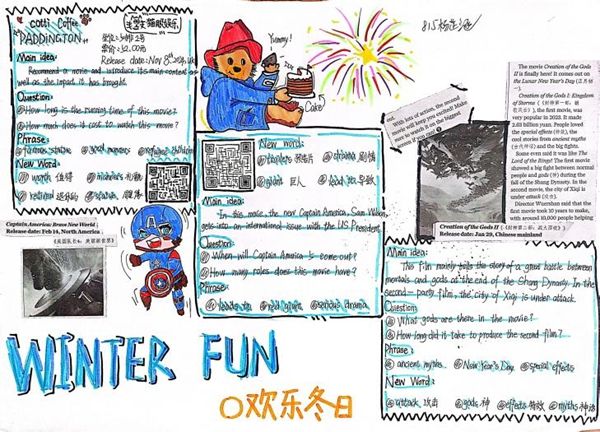 cotti Coffee
PADDINGTON
猫眼娱乐
票价:32.00元
Release date: Nov 8th 2024, UK
Main idea:
Recommend a movie and introduce its main content as
well as the impact it has brought.
Question:
①How long is the running time of this movie?
②How much does it cost to watch this movie?
Phrase:
①famous statue ②good manners
New Word:
①worth 值得 ②manners 礼貌
③retired ④statue
Yummy!
Cake
815
New word:
①trailers 预告片 ②drama 剧情
③giant 巨人 ④lead to 导致
Main idea:
In this movie, the new Captain America, Sam Wilson,
gets into an international issue with the US President.
Question:
①When will Captain America 4 come out?
②How many roles does this movie have?
Phrase:
①leads to ②red giant ③serious drama
Captain America: Brave New World
Release date: Feb 14, North America
《美国队长4:美丽新世界》
out. With lots of action, the second
movie will keep you excited! Make
sure to watch it on the biggest
screen you can!
The movie Creation of the Gods
II is finally here! It comes out on
the Lunar New Year's Day (正月初
一).
Creation of the Gods I: Kingdom
of Storms (《封神第一部:朝
歌风云》), the first movie, was
very popular in 2023. It made
2.63 billion yuan. People loved
the special effects (特效), the
cool stories from ancient myths
(古代神话) and the big fights.
Some even said it was like The
Lord of the Rings! The first movie
showed a big fight between normal
people and gods (神) during the
fall of the Shang Dynasty. In the
second movie, the city of Xiqi is
under attack (攻击).
Director Wuershan said that the
first movie took 10 years to make,
with around 10,000 people helping
Creation of the Gods II (《封神第二部:战火西岐》)
Release date: Jan 29, Chinese mainland
Main idea:
This film mainly tells the story of a great battle between
mortals and gods at the end of the Shang Dynasty. In the
second party film, the city of Xiqi is under attack.
Question:
①What gods are there in the movie?
②How long did it take to produce the second film?
Phrase:
①ancient myths ②New Year's Day ③special effects
New Word:
①attack 攻击 ②gods 神 ③effects 特效 ④myths 神话
WINTER FUN
欢乐冬日